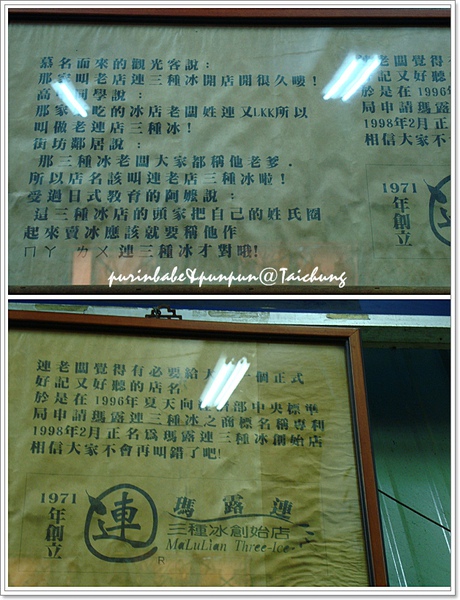 慕名而來的觀光客說：
那家叫老店連三種冰開店開很久嘍！
高 同學說：
那家 吃的冰店老闆姓連又LKK所以
叫做老連店三種冰！
街坊鄰居說：
那三種冰老闆大家都稱他老爹．
所以店名該叫連老店三種冰啦！
受過日式教育的阿嬤說：
這三種冰店的頭家把自己的姓氏圈
起來賣冰應該就要稱他作
ㄇㄚ ㄌㄨ 連三種冰才對哦！
連老闆覺得
好記又好
於是在1996
局申請瑪露
1998年2月正
相信大家不
1971
年創立
連
purinbabe&punpun@Taichung
連老闆覺得有必要給 個正式
好記又好聽的店名
於是在1996年夏天向 部中央標準
局申請瑪露連三種冰之商標名稱專利
1998年2月正名為瑪露連三種冰創始店
相信大家不會再叫錯了吧！
1971
年創立
連
瑪露連
三種冰創始店
MaLuLian Three-Ice
R